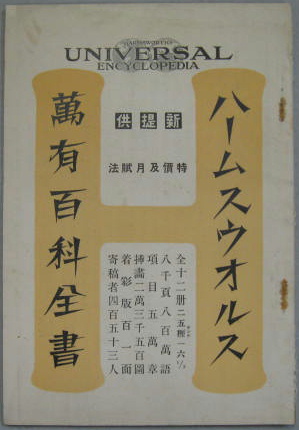 HARMSWORTH'S
UNIVERSAL
ENCYCLOPEDIA
ハームスウオルス
萬有百科全書
新提供
特價及月賦法
全十二册二五糎一六
八千頁八百萬語
項目五萬章
揷畵二萬三千五百圖
着彩版百一面
寄稿者四百五十三人